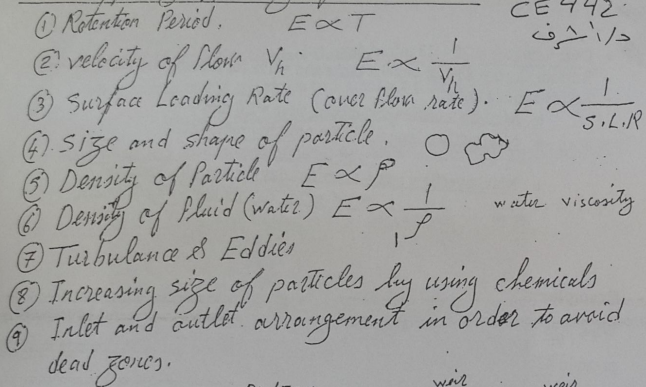 CE 442
① Retention Period. E ∝ T
د/أشرف
② velocity of flow Vh E ∝ 1/Vh
③ Surface Loading Rate (over flow rate). E ∝ 1/S.L.R
④ Size and shape of particle.
⑤ Density of Particle E ∝ ρ
⑥ Density of fluid (water) E ∝ 1/ρ water viscosity
⑦ Turbulance & Eddies
⑧ Increasing size of particles by using chemicals
⑨ Inlet and outlet arrangement in order to avoid
dead zones.
weir weir